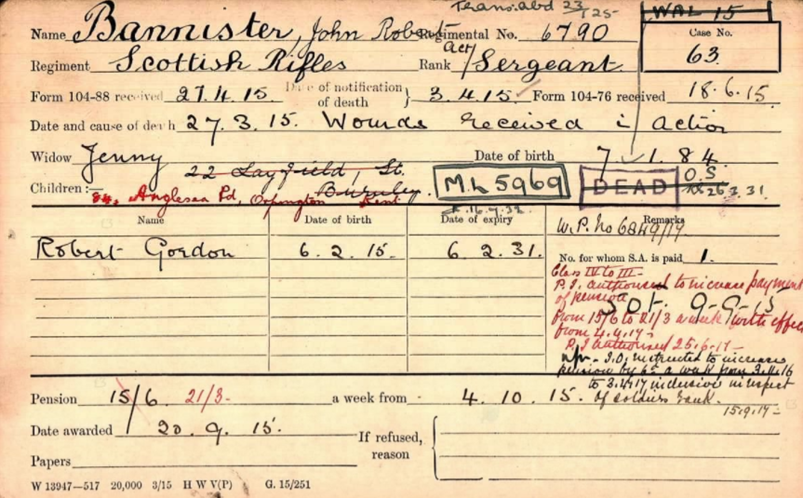 Trans:abd 23/T25-
WAL 15
Name Bannister, John Robert Regimental No. 6790
Case No. 63.
Regiment Scottish Rifles Rank Act/Sergeant.
Form 104-88 received 27.4.15. Date of notification of death } 3.4.15. Form 104-76 received 18.6.15.
Date and cause of death 27.3.15. Wounds received in action
Widow Jenny Date of birth 7.1.84
22 Layfield, St. Burnley.
Children:— 84, Anglesea Rd, Orpington Kent
ML 5969 DEAD O.S
Name Date of birth Date of expiry Remarks
W.P. No 6849/17
Robert Gordon 6.2.15. 6.2.31. No. for whom S.A. is paid 1.
Class IV to III-
P.I. authorised to increase payment
of pension
from 15/6 to 21/3 a week with effect
from 4.4.17-
P.I authorised 25.6.17-
I.O. instructed to increase
pension by 6d a week from
to 3.4.17 inclusive in respect
of soldiers rank.
15.9.17-
Pension 15/6 21/3- a week from - 4.10.15.
Date awarded 20.9.15. If refused, reason {
Papers
W 13947—517 20,000 3/15 H W V(P) G. 15/251